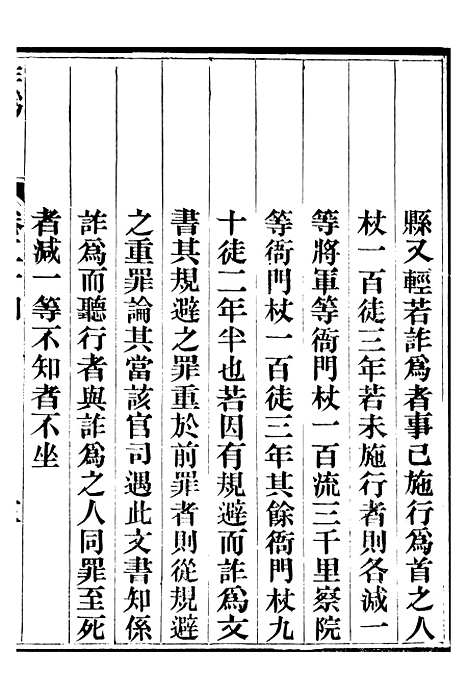 縣又輕若詐爲者事已施行爲首之人
杖一百徒三年若未施行者則各減一
等將軍等衙門杖一百流三千里察院
等衙門杖一百徒三年其餘衙門杖九
十徒二年半也若因有規避而詐爲文
書其規避之罪重於前罪者則從規避
之重罪論其當該官司遇此文書知係
詐爲而聽行者與詐爲之人同罪至死
者減一等不知者不坐